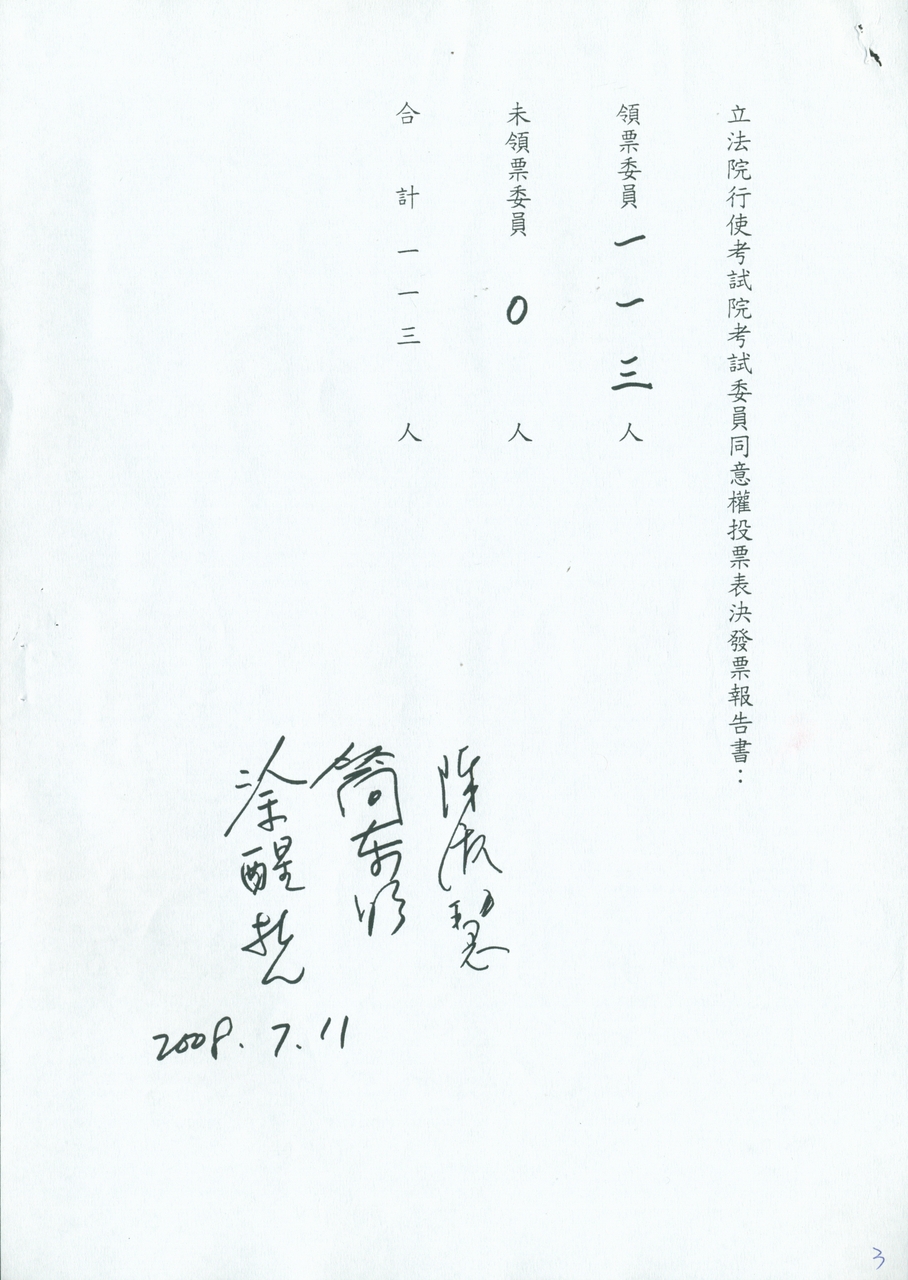 立法院行使考試院考試委員同意權投票表決發票報告書：
領票委員一一三人
未領票委員0人
合計一一三人
陳淑慧
簡東明
涂醒哲
2008.7.11
3